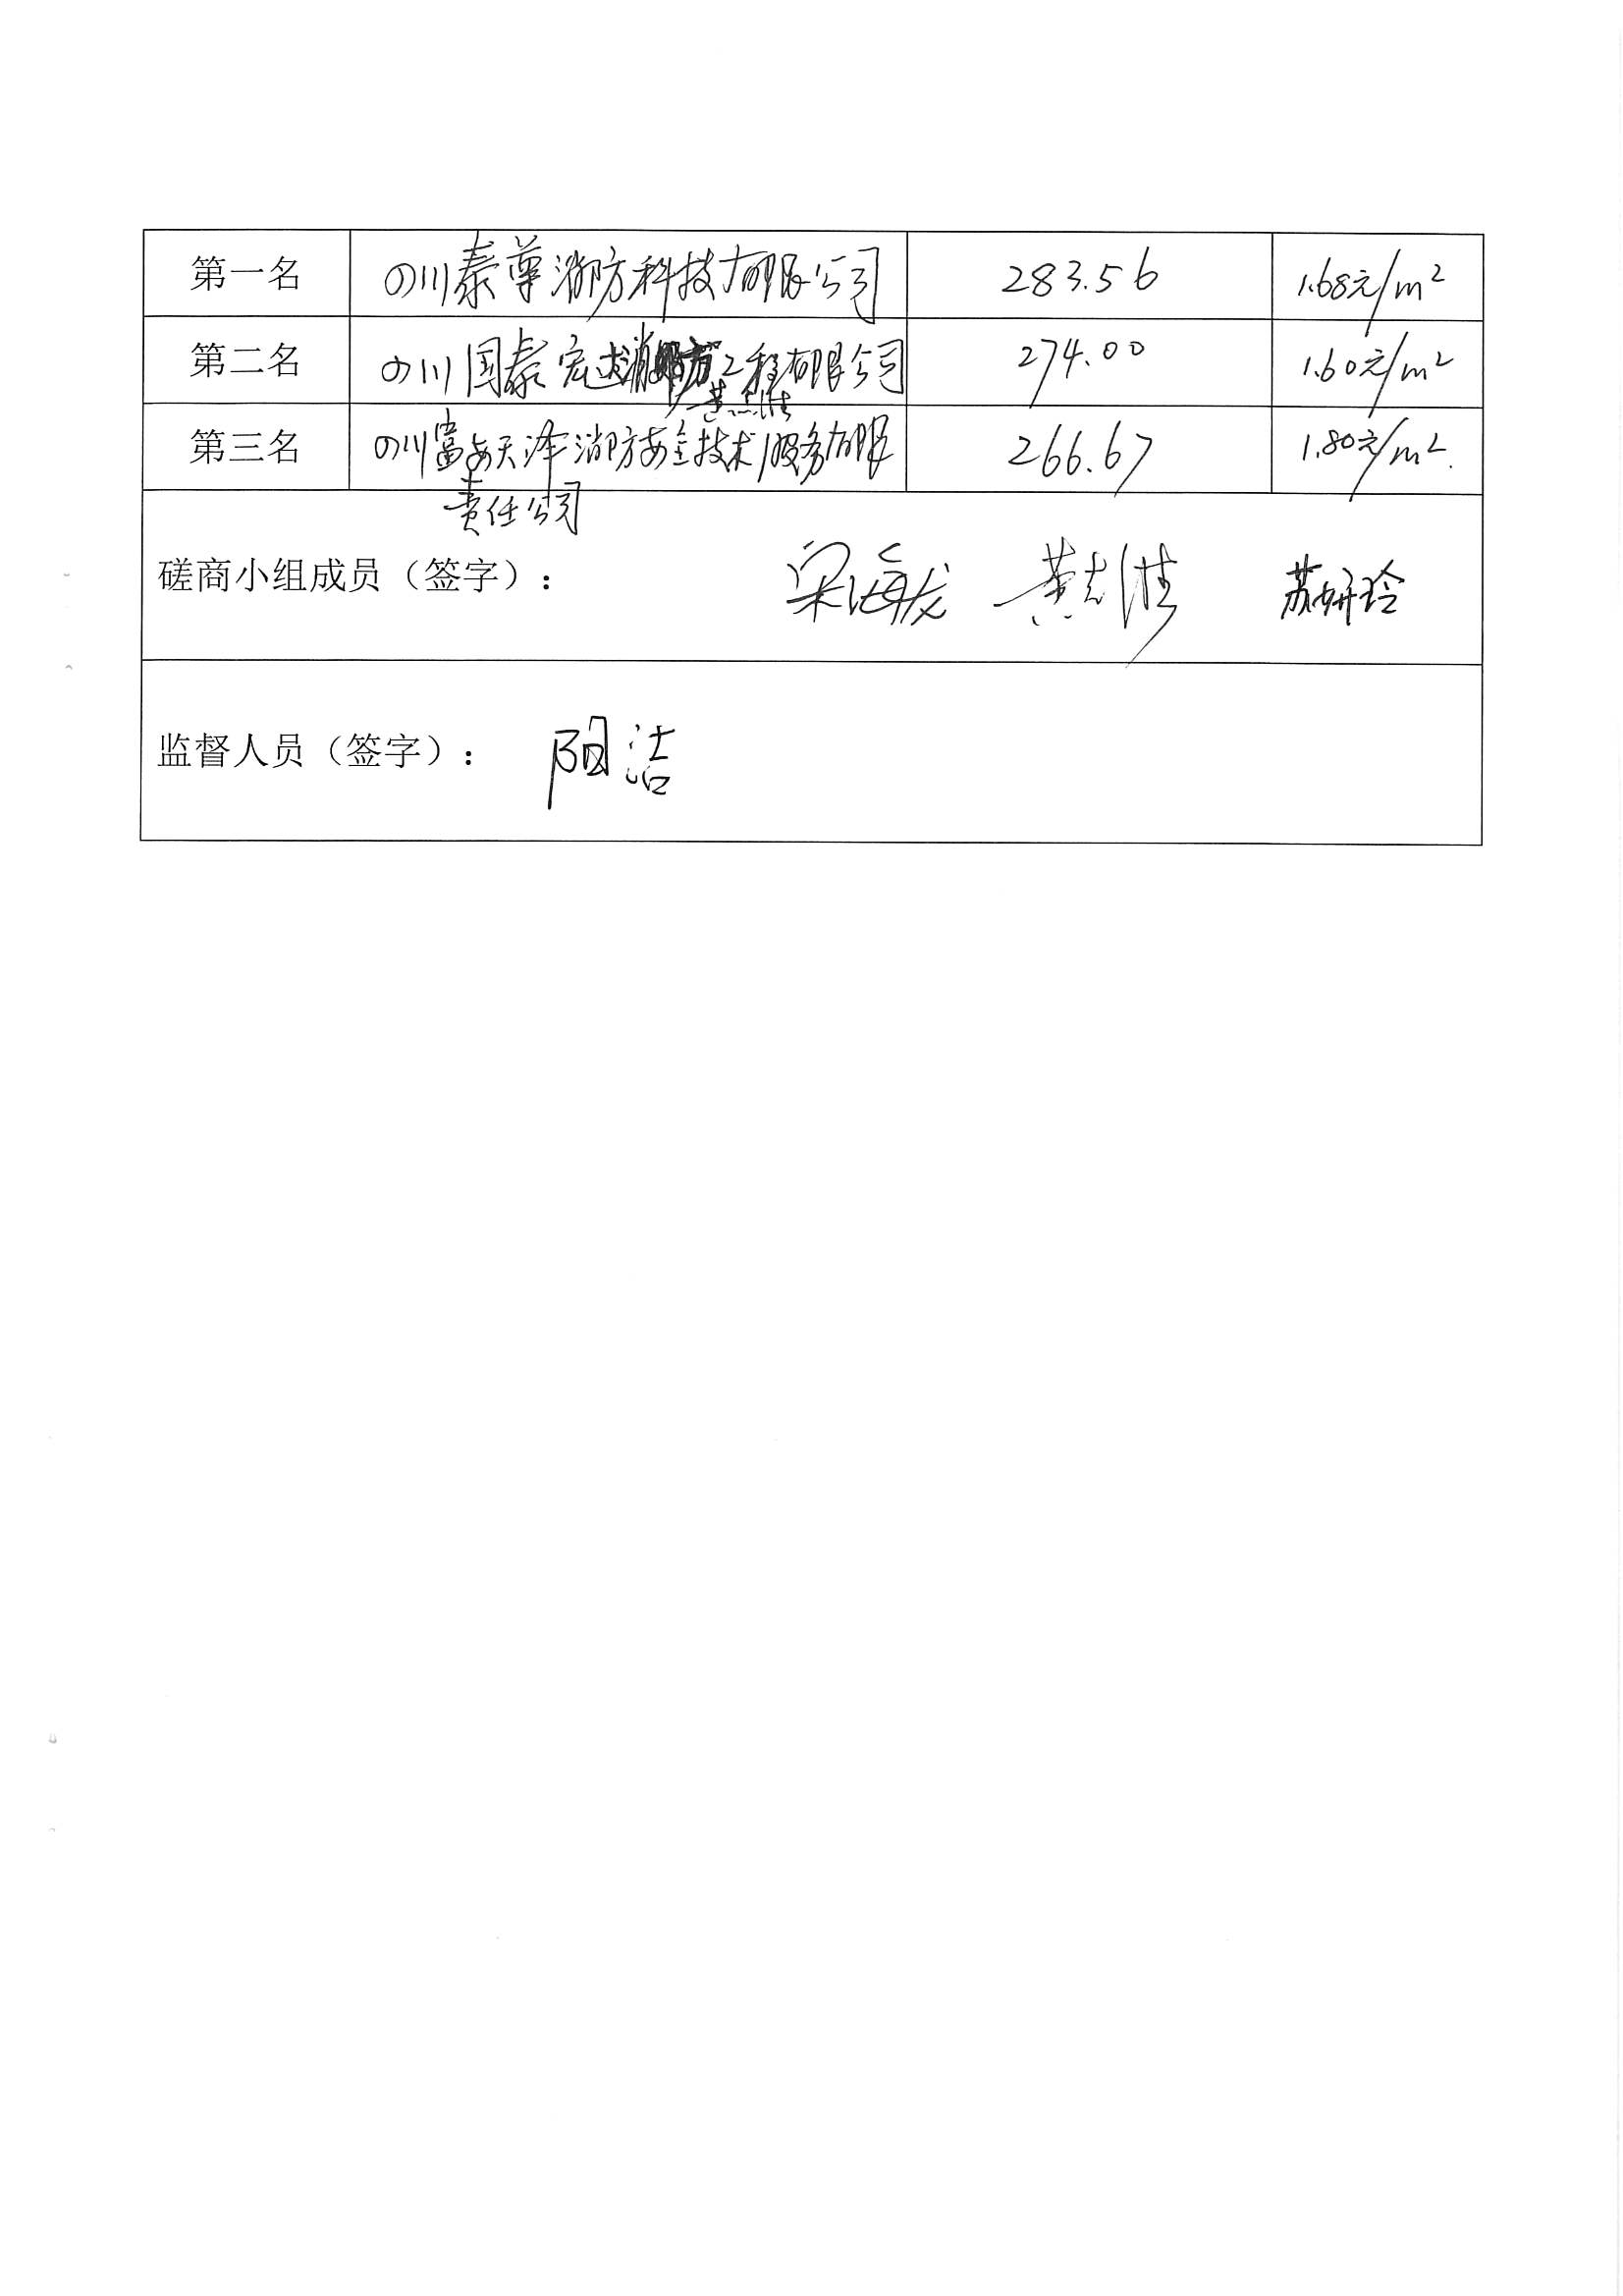 第一名 四川泰尊消防科技有限公司 283.56 1.68元/m²
第二名 四川国泰宏达消防工程有限公司 274.00 1.60元/m²
第三名 四川富安天泽消防安全技术服务有限 266.67 1.80元/m².
责任公司
磋商小组成员（签字）： 梁海龙 苏妍玲
监督人员（签字）： 阳洁